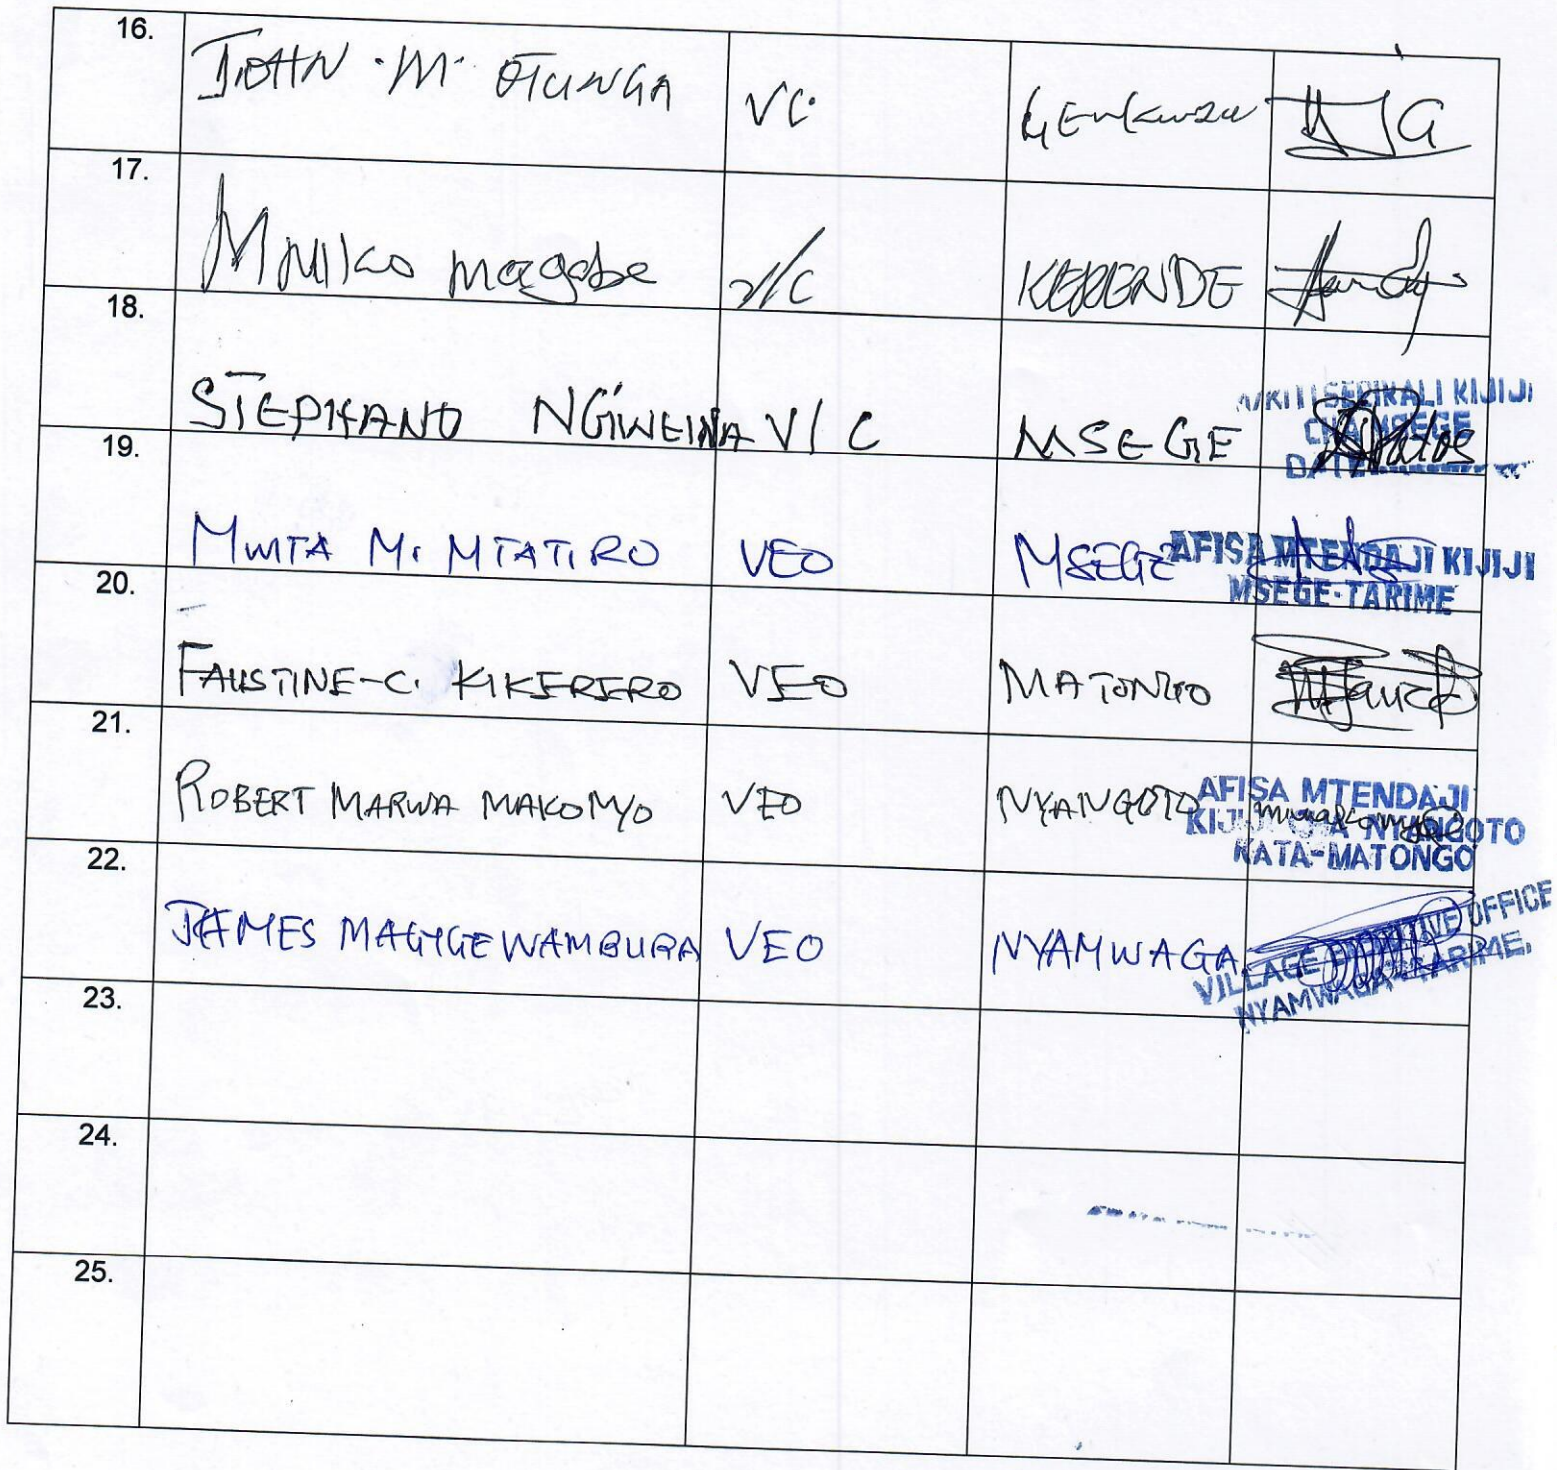 16. JOHN .M. OTUNGA VC. Genkuru
17. Mniko magabe v/c KERENDE
18. STEPHANO NGIWEINA V/C MSEGE M/KITI SERIKALI KIJIJI
CHA MSEGE
DATE
19. MWITA M. MTATIRO VEO MSEGE AFISA MTENDAJI KIJIJI
MSEGE-TARIME
20. FAUSTINE-C. KIKERERO VEO MATONGO
21. ROBERT MARWA MAKOMYO VEO NYANGOTO AFISA MTENDAJI
KIJIJI CHA NYANGOTO
KATA-MATONGO
22. JAMES MAGIGE WAMBURA VEO NYAMWAGA VILLAGE EXECUTIVE OFFICE
NYAMWAGA-TARIME.
23.
24.
25.